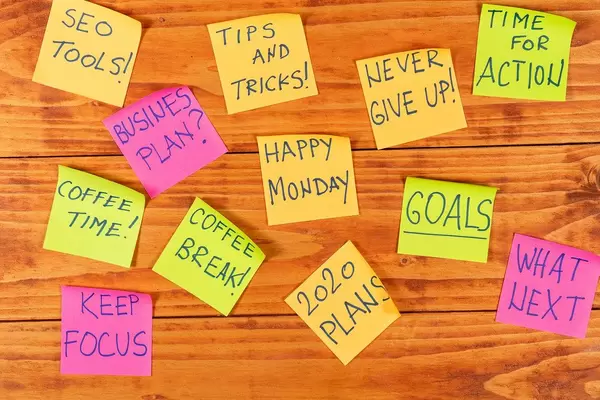 SEO
TOOLS!
TIPS
AND
TRICKS!
NEVER
GIVE UP!
TIME
FOR
ACTION
BUSINES
PLAN?
HAPPY
MONDAY
COFFEE
TIME!
COFFEE
BREAK!
GOALS
2020
PLANS
WHAT
NEXT
KEEP
FOCUS